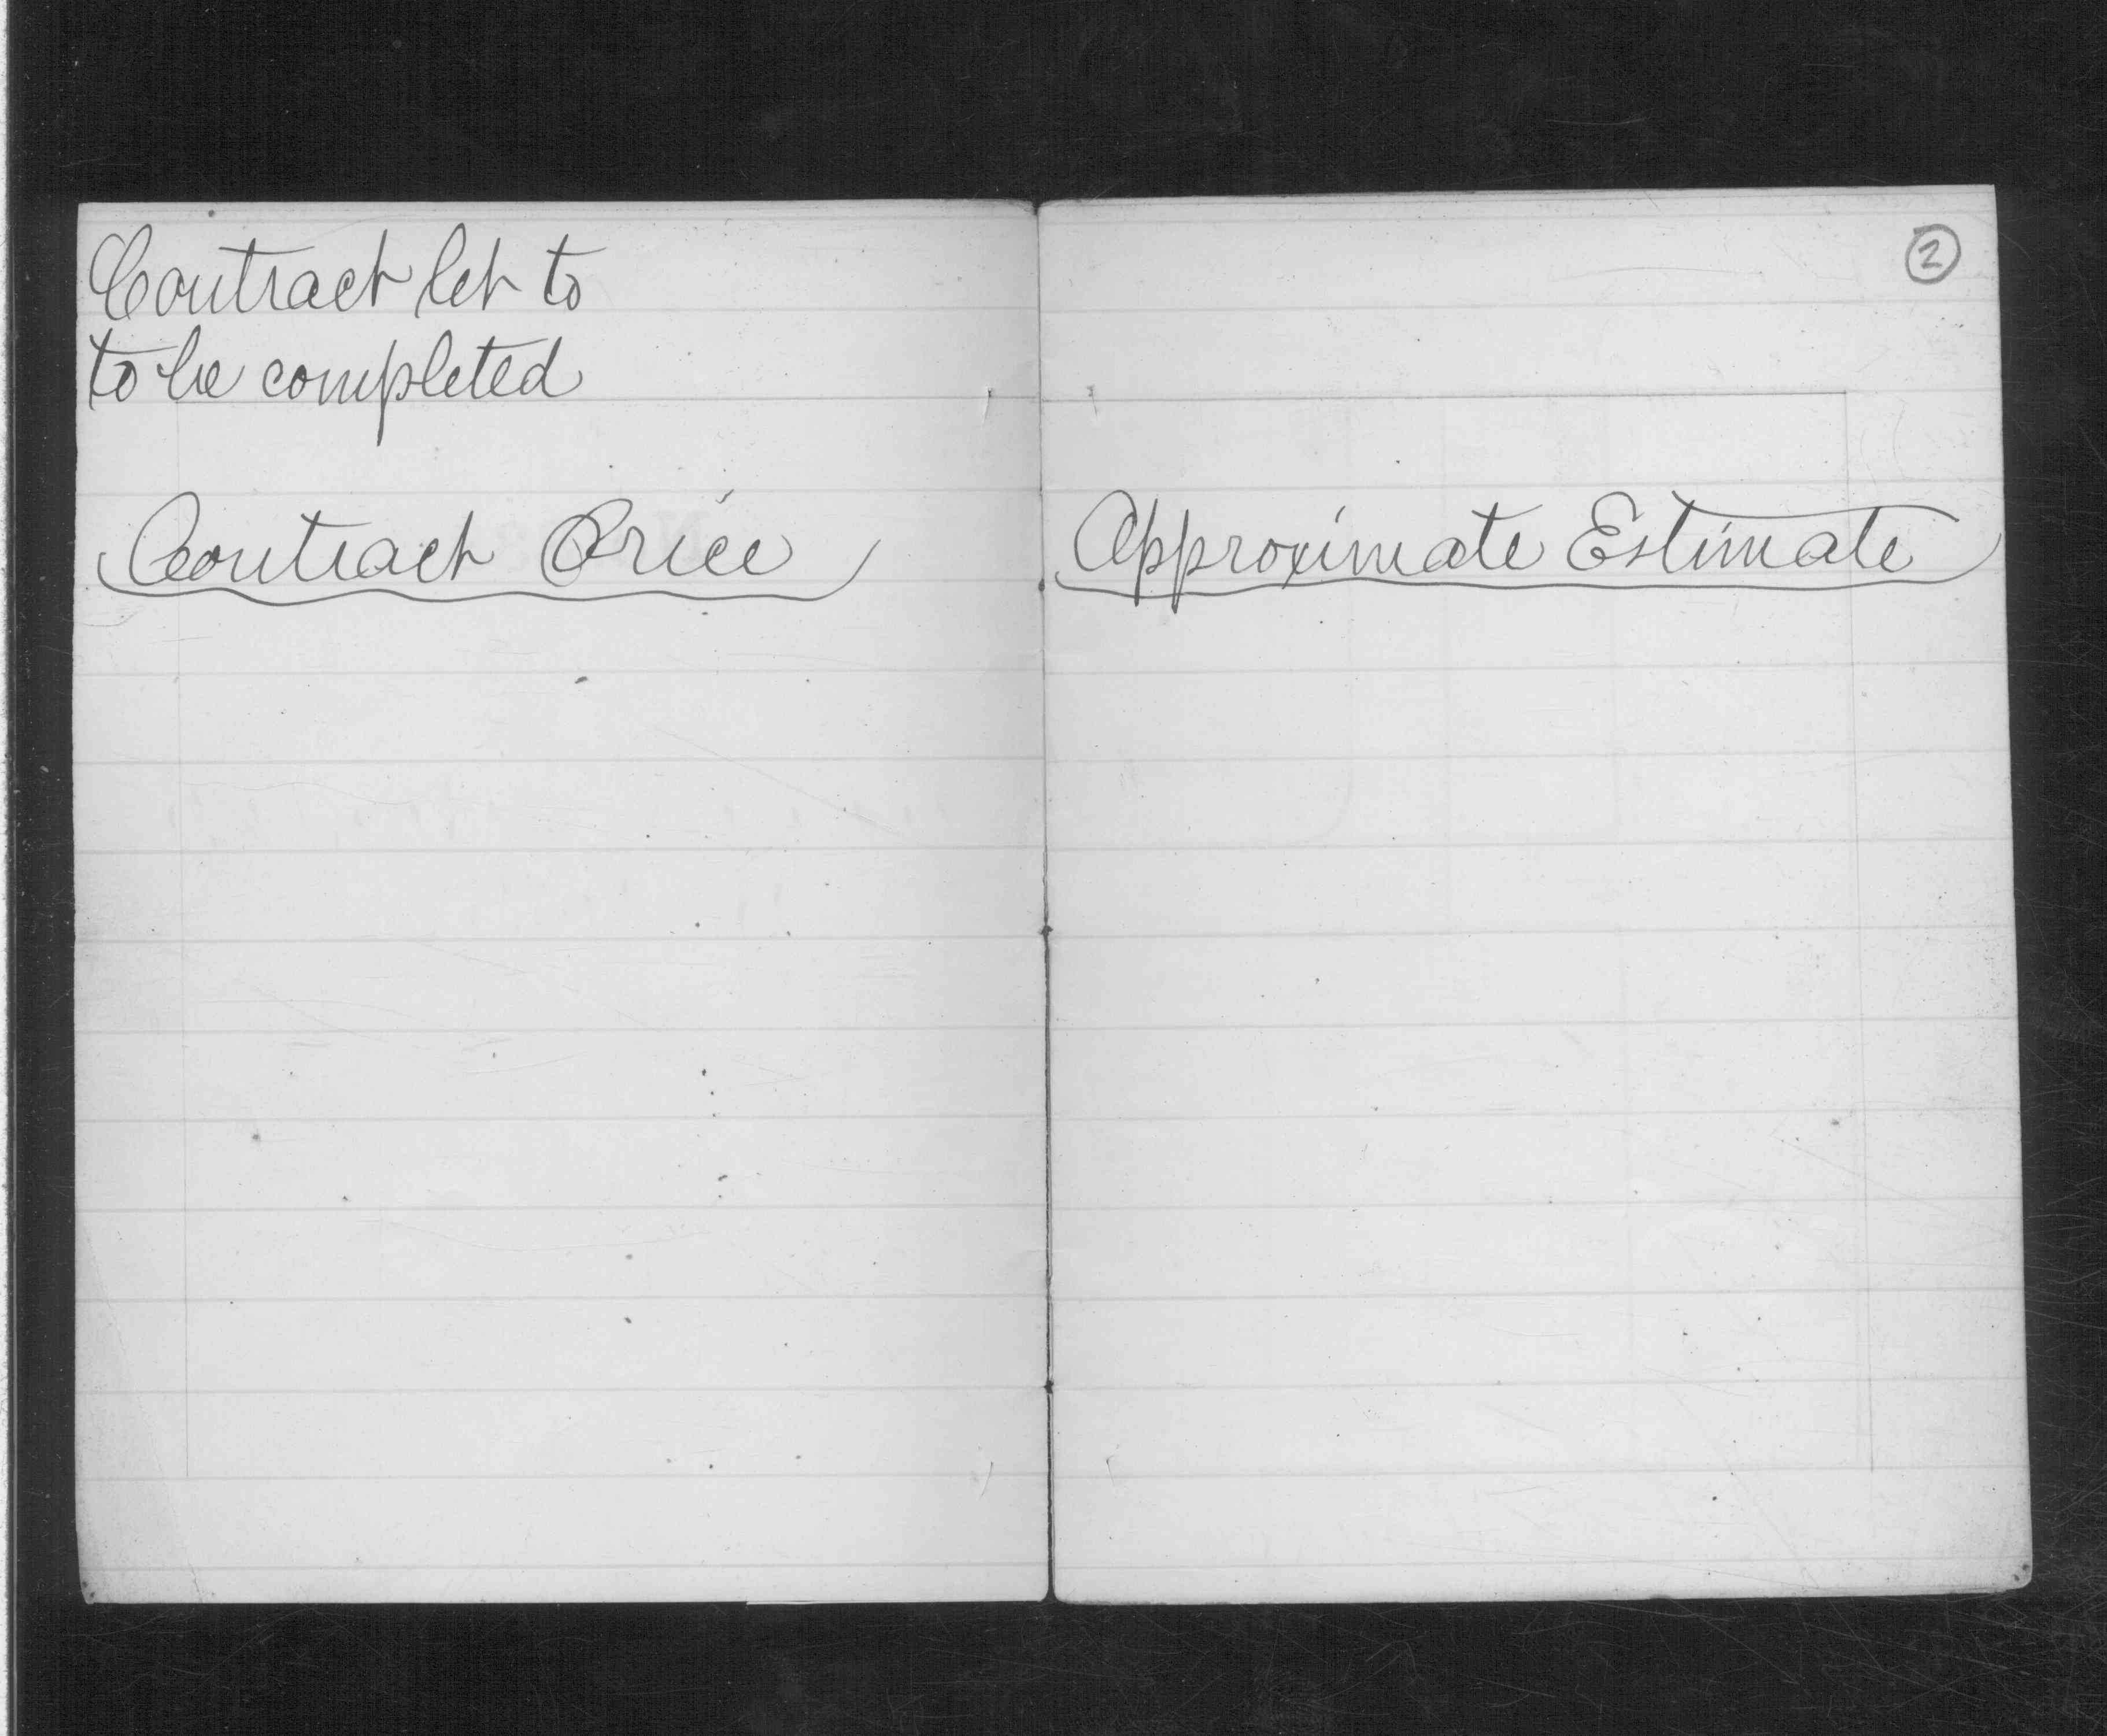 Contract let to
to be completed
Contract Price
2
Approximate Estimate